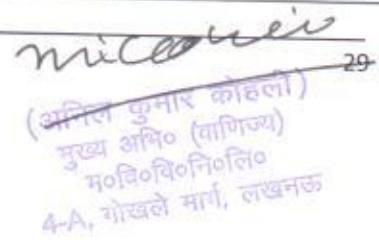 29
(अनिल कुमार कोहली)
मुख्य अभि० (वाणिज्य)
म०वि०वि०नि०लि०
4-A, गोखले मार्ग, लखनऊ